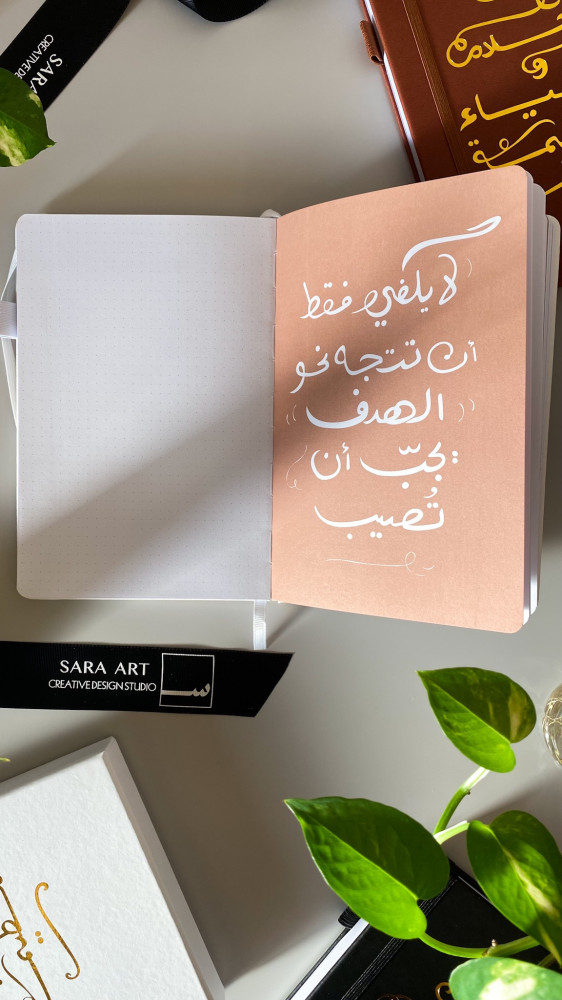 SARA
CREATIVE DE
لا يكفي فقط
أن تتجه نحو
((الهدف))
يجبّ أن
تُصيب
SARA ART
CREATIVE DESIGN STUDIO
ســ